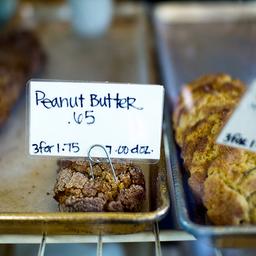 Peanut Butter
.65
3 for 1.75 7.00 doz.
3 for 1